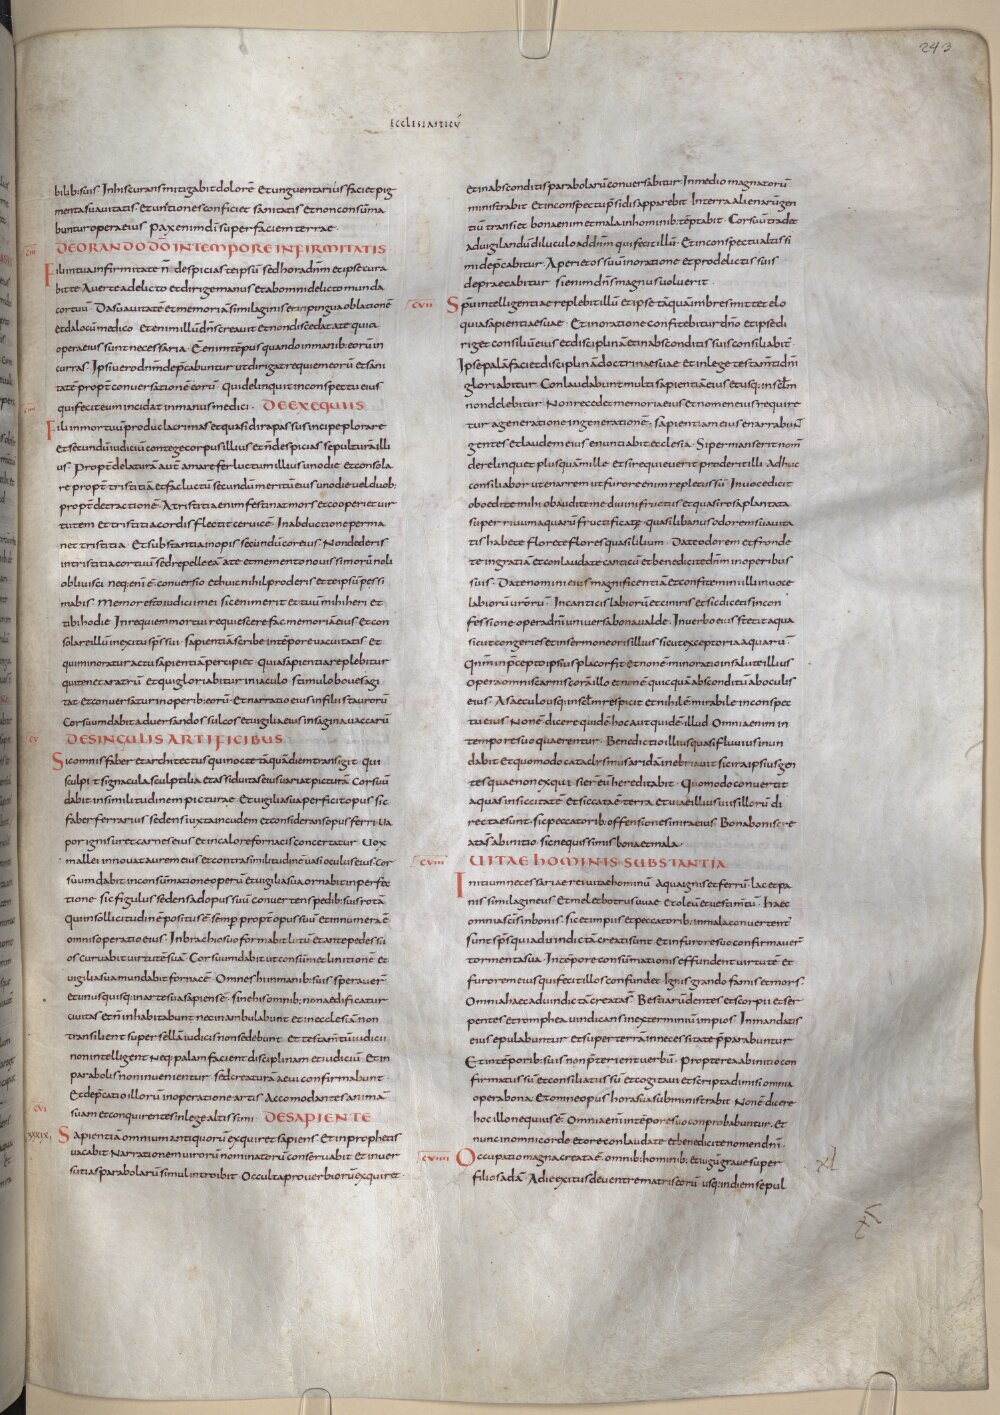 243
ECCLESIASTICŪ
bilib; suis· In his curans mitigabit dolorē· Et unguentarius faciet pig
menta suavitatis· Et unctiones conficiet sanitatis et non consūma
buntur opera eius· Pax enim dī super faciem terrae·
CIII
DE ORANDO DŌ IN TEMPORE INFIRMITATIS·
Fili in tua infirmitate n̄ despicias te ipsū· sed hora dn̄m et ipse cura
bit te· Averte a delicto et dirige manus et ab omni delicto munda
cor tuū· Da suavitatē et memoriā similaginis et inpingua oblationē
et da locū medico· Et enim illū dn̄s creavit et non discedat a te quia
opera eius sunt necessaria· Ē enim tēpus quando in manib; eorū in
curras· Ipsi vero dn̄m dep̄cabuntur ut dirigat requiem eorū et sani
tatē propt̄ conversationē eorū· Qui delinquit in conspectu eius
qui fecit eum incidat in manus medici·
CIIII
DE EXEQUIIS
Fili in mortuū produc lacrimas et quasi dira passus incipe plorare
et secundū iudiciū contege corpus illius et n̄ despicias sepulturā illi
us· Propt̄ delaturā aut̄ amare fer luctum illius uno die· Et consola
re propt̄ tristitiā et fac luctū secundū meritū eius uno die vel duob;
propt̄ detractionē· A tristitia enim festinat mors et cooperit vir
tutem et tristitia cordis flectit cervicē· In abductione perma
net tristitia· Et substantia inopis secundū cor eius· Non dederis
in tristitia cor tuū sed repelle eā a te· et memento novissimorū noli
oblivisci· neq; enī ē conversio et huic nihil proderis et te ipsū pessi
mabis· Memor esto iudicii mei sic enim erit et tuū mihi heri et
tibi hodie· In requie mortui requiescere fac memoriā eius· Et con
solare illū in exitu sp̄s sui· sapientiā scribe in tēpore vacuitatis· Et
qui minoratur actu sapientiā percipiet· Quia sapientia replebitur
qui tenet aratrū· Et qui gloriabitur in iaculo· stimulo boves agi
tat· et conversatur in operib; eorū· Et narratio eius in filiis taurorū·
Cor suum dabit ad versandos sulcos et vigilia eius in sagina vaccarū
CV
DE SINGULIS ARTIFICIBUS
Sic omnis faber et architectus qui nocte tāquā diem transigit· Qui
sculpit signacula sculptilia et assiduitas eius variat picturā· Cor suū
dabit in similitudinem picturae· Et vigilia sua perficit opus· sic
faber ferrarius sedens iuxta incudem et considerans opus ferri· Va
por ignis uret carnes eius et in calore fornacis concertatur· Vox
mallei innovat aurem eius et contra similitudinē vasi oculus eius· Cor
suum dabit in consūmatione operū et vigilia sua ornabit in perfec
tione· sic figulus sedens ad opus suū convertens pedib; suis rotā
Qui in sollicitudinē positus ē semp̄ propt̄ opus suū et innumera ē
omnis operatio eius· In brachio suo formabit lutū et ante pedes su
os curvabit virtutē suā· Cor suum dabit ut consūmet linitionē et
vigilia sua mundabit fornacē· Omnes hi in manib; suis speraver̄
et unusquisq; in arte sua sapiens ē· sine his omnib; non aedificatur
civitas et n̄ inhabitabunt nec inambulabunt· Et in ecclesiā non
transilient· super sellā iudicis non sedebunt· Et testam̄tū iudicii
non intelligent· Neq; palam facient disciplinam et iudiciū· Et in
parabolis non invenientur· sed creaturā aevi confirmabunt·
Et dep̄catio illorū in operatione artis· Accomodantes animā
CVI
suam et conquirentes in lege altissimi·
DE SAPIENTE
XXXIX,
Sapientiā omnium antiquorū exquiret sapiens· Et in prophetis
vacabit· Narrationem virorū nominatorū conservabit· Et in ver
sutias parabolarū simul introibit· Occulta proverbiorū exquiret·
et in absconditis parabolarū conversabitur· In medio magnatorū
ministrabit· Et in conspectu p̄sidis apparebit· In terra alienarū gen
tiū transiet· bona enim et mala in hominib; tēptabit· Cor suū tradet
ad vigilandū diluculo ad dn̄m qui fecit illū· Et in conspectu altissi
mi dep̄cabitur· Aperiet os suū in oratione et pro delictis suis
deprecabitur· si enim dn̄s magnus voluerit·
CVII
Spū intelligentiae replebit illū· Et ipse tāquā imbres mittet elo
quia sapientiae suae· Et in oratione confitebitur dn̄o et ipse di
riget consiliū eius et disciplinā et in absconditis suis consiliabit̄·
Ipse palā faciet disciplinā doctrinae suae· et in lege testam̄ti dn̄i
gloriabitur· Conlaudabunt multi sapientiā eius et usq; in sc̄lm
non delebitur· Non recedet memoria eius et nomen eius require
tur a generatione in generationē· sapientiam eius enarrabun̄
gentes et laudem eius enuntiabit ecclesia· Si permanserit nom̄
derelinquet plus quā mille· Et si requieverit proderit illi· Adhuc
consiliabor ut enarrem ut furore enim repletus sū· In voce dicit
oboedite mihi obaudite me divini fructus et quasi rosa plantata
super rivum aquarū fructificate· quasi libanus odorem suavita
tis habete· Florete flores quasi lilium· Date odorem et fronde
te in gratiā et conlaudate canticū et benedicite dn̄m in operibus
suis· Date nomini eius magnificentiā et confitemini illi in voce
labiorū vr̄orū· In canticis labiorū et citharis et sic dicetis in con
fessione opera dn̄i universa bona valde· In verbo eius stetit aqua
sicut congeries et in sermone oris illius sicut exceptoria aquarū·
Qn̄m in p̄cepto ipsius placor fit· et non ē minoratio in salute illius
Opera omnis carnis corā illo· et non ē quicquā absconditū ab oculis
eius· A saeculo usq; in sc̄lm respicit et nihil ē mirabile in conspec
tu eius· Non ē dicere quid ē hoc aut quid ē illud· Omnia enim in
tempore suo quaerentur· Benedictio illius quasi fluvius inun
dabit· et quomodo cataclysmus aridā inebriavit· sic ira ipsius gen
tes quae non exquisierunt eū hereditabit· Quomodo convertit
aquas in siccitatē· et siccata ē terra· et viae illius viis illorū di
rectae sunt· sic peccatorib; offensiones in ira eius· Bona bonis cre
ata sū ab initio· sic nequissimis bona et mala·
CVIII
VITAE HOMINIS SUBSTANTIA
Initium necessariae rei vitae hominū· Aqua ignis et ferrū· lac et pa
nis similagineus· Et mel et botrus uvae· Et oleū et vestim̄tū· haec
omnia sc̄is in bonis· sic et impiis et peccatorib; in mala convertent̄
sunt sp̄s qui ad vindictā creati sunt· Et in furore suo confirmaver̄
tormenta sua· In tēpore consūmationis effundent virtutē· et
furorem eius qui fecit illos confundet· Ignis grando famis et mors·
Omnia haec ad vindictā creata sū· Bestiarū dentes et scorpii et ser
pentes et romphea vindicans in exterminiū impios· In mandatis
eius epulabuntur· Et super terrā in necessitatē p̄parabuntur·
Et in tēporib; suis non p̄terient verbū· Propterea ab initio con
firmatus sū et consiliatus sū· et cogitavi et scripta dimisi· omnia
opera bona· Et omne opus hora sua subministrabit· Non ē dicere
hoc illo nequius ē· Omnia enī in tēpore suo conprobabuntur· Et
nunc in omni corde et ore conlaudate et benedicite nomen dn̄i·
CVIIII
Occupatio magna creata ē omnib; hominib; et iugū grave super
filios adā· A die exitus de ventre matris eorū usq; in diem sepul
xl